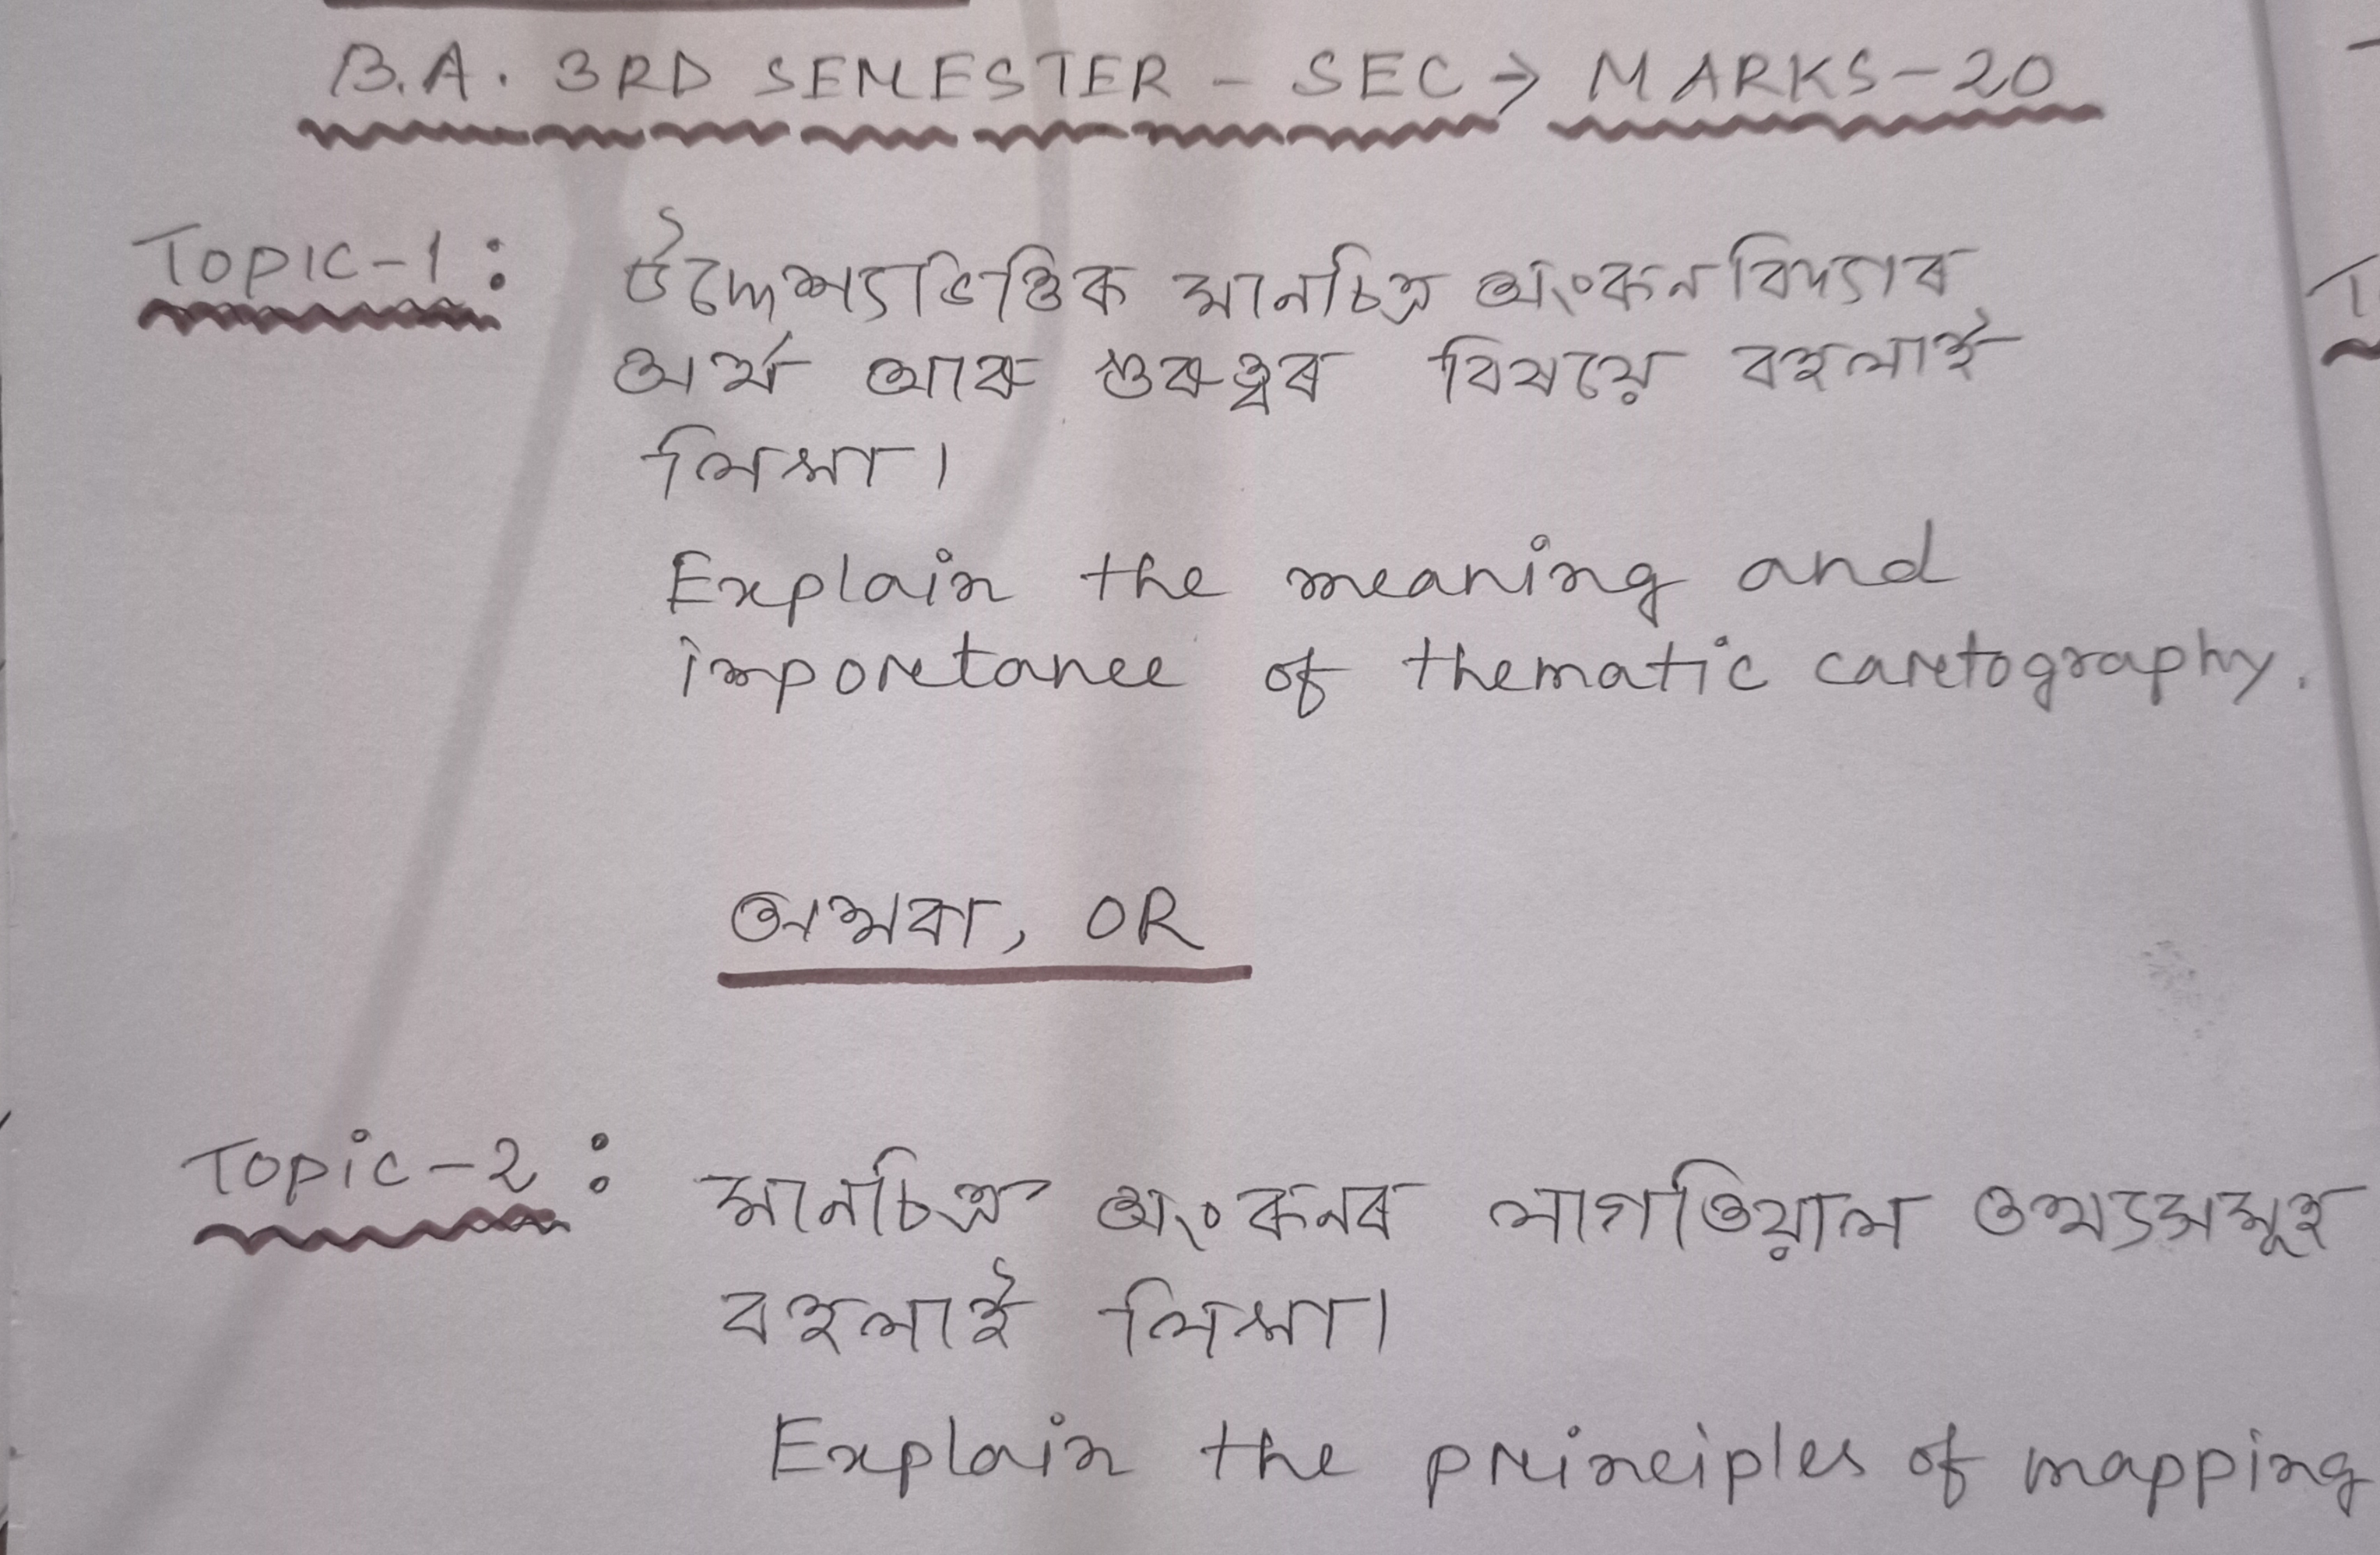 B.A. 3RD SEMESTER – SEC → MARKS-20
TOPIC-1: উদ্দেশ্যভিত্তিক মানচিত্ৰ অংকনবিদ্যাৰ
অৰ্থ আৰু গুৰুত্বৰ বিষয়ে বহলাই
লিখা।
Explain the meaning and
importance of thematic cartography.
অথবা, OR
TOPIC-2: মানচিত্ৰ অংকনৰ লাগতিয়াল তথ্যসমূহ
বহলাই লিখা।
Explain the principles of mapping